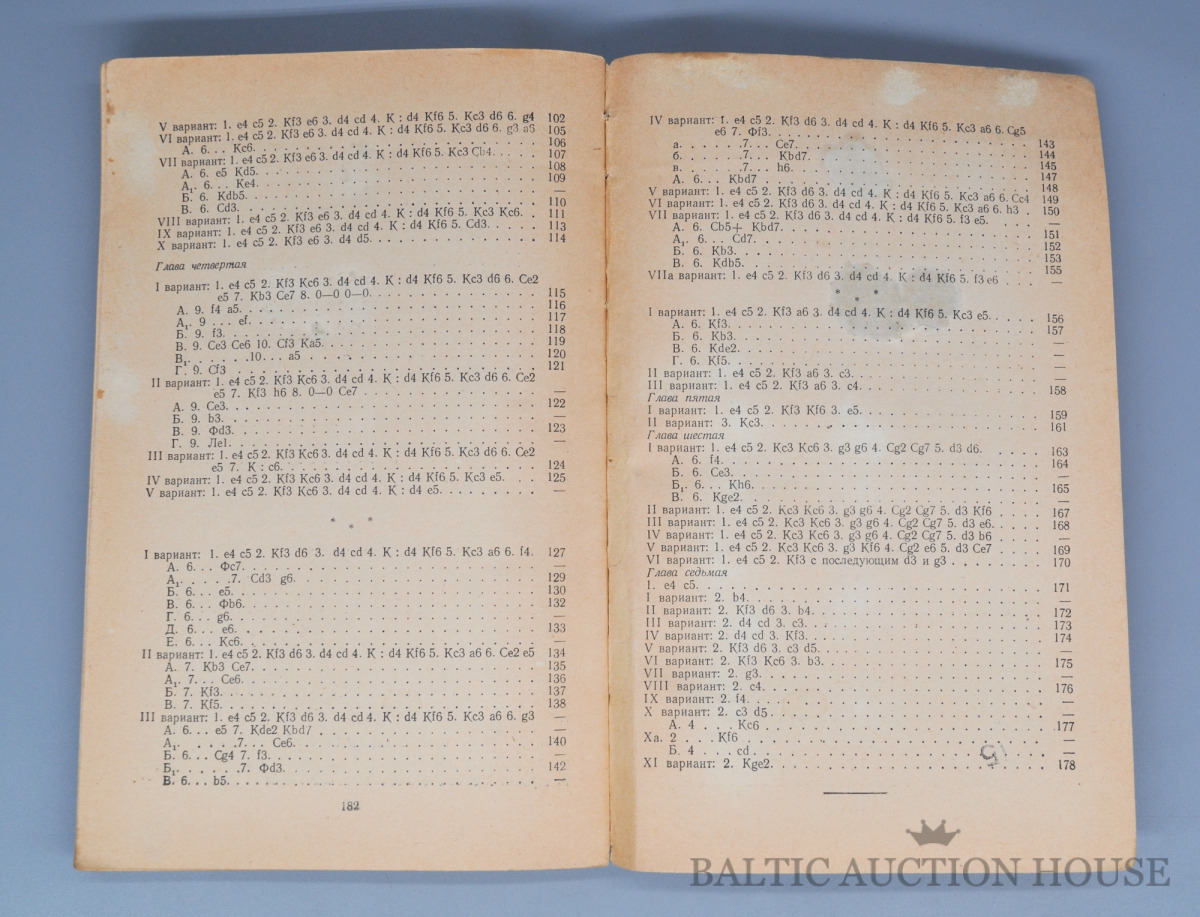 V вариант: 1. e4 c5 2. Kf3 e6 3. d4 cd 4. K : d4 Kf6 5. Kc3 d6 6. g4 102
VI вариант: 1. e4 c5 2. Kf3 e6 3. d4 cd 4. K : d4 Kf6 5. Kc3 d6 6. g3 a6 105
А. 6... Kc6. 106
VII вариант: 1. e4 c5 2. Kf3 e6 3. d4 cd 4. K : d4 Kf6 5. Kc3 Cb4. 107
А. 6. e5 Kd5. 108
А₁. 6. . . Ke4. 109
Б. 6. Kdb5. —
В. 6. Cd3. 110
VIII вариант: 1. e4 c5 2. Kf3 e6 3. d4 cd 4. K : d4 Kf6 5. Kc3 Kc6. 111
IX вариант: 1. e4 c5 2. Kf3 e6 3. d4 cd 4. K : d4 Kf6 5. Cd3. 113
X вариант: 1. e4 c5 2. Kf3 e6 3. d4 d5. 114
Глава четвертая
I вариант: 1. e4 c5 2. Kf3 Kc6 3. d4 cd 4. K : d4 Kf6 5. Kc3 d6 6. Ce2
e5 7. Kb3 Ce7 8. 0—0 0—0. 115
А. 9. f4 a5. 116
А₁. 9 ... ef. 117
Б. 9. f3. 118
В. 9. Ce3 Ce6 10. Cf3 Ka5. 119
В₁. . . . . . .10... a5 120
Г. 9. Cf3 121
II вариант: 1. e4 c5 2. Kf3 Kc6 3. d4 cd 4. K : d4 Kf6 5. Kc3 d6 6. Ce2
e5 7. Kf3 h6 8. 0—0 Ce7 —
А. 9. Ce3. 122
Б. 9. b3. —
В. 9. Фd3. 123
Г. 9. Ле1. —
III вариант: 1. e4 c5 2. Kf3 Kc6 3. d4 cd 4. K : d4 Kf6 5. Kc3 d6 6. Ce2
e5 7. K : c6. 124
IV вариант: 1. e4 c5 2. Kf3 Kc6 3. d4 cd 4. K : d4 Kf6 5. Kc3 e5. 125
V вариант: 1. e4 c5 2. Kf3 Kc6 3. d4 cd 4. K : d4 e5. —
* * *
I вариант: 1. e4 c5 2. Kf3 d6 3. d4 cd 4. K : d4 Kf6 5. Kc3 a6 6. f4. 127
А. 6... Фc7. —
А₁. . . . . .7. Cd3 g6. 129
Б. 6... e5. 130
В. 6... Фb6. 132
Г. 6... g6. —
Д. 6... e6. 133
Е. 6... Kc6. —
II вариант: 1. e4 c5 2. Kf3 d6 3. d4 cd 4. K : d4 Kf6 5. Kc3 a6 6. Ce2 e5 134
А. 7. Kb3 Ce7. 135
А₁. 7... Ce6. 136
Б. 7. Kf3. 137
В. 7. Kf5. 138
III вариант: 1. e4 c5 2. Kf3 d6 3. d4 cd 4. K : d4 Kf6 5. Kc3 a6 6. g3 —
А. 6... e5 7. Kde2 Kbd7 —
А₁. . . . . . .7... Ce6. 140
Б. 6... Cg4 7. f3. —
Б₁. . . . . . .7. Фd3. 142
В. 6... b5. —
182
IV вариант: 1. e4 c5 2. Kf3 d6 3. d4 cd 4. K : d4 Kf6 5. Kc3 a6 6. Cg5
e6 7. Фf3. —
а. . . . . . .7... Ce7. 143
б. . . . . . .7... Kbd7. 144
в. . . . . . .7... h6. 145
А. 6... Kbd7 147
V вариант: 1. e4 c5 2. Kf3 d6 3. d4 cd 4. K : d4 Kf6 5. Kc3 a6 6. Cc4 148
VI вариант: 1. e4 c5 2. Kf3 d6 3. d4 cd 4. K : d4 Kf6 5. Kc3 a6 6. h3 . 149
VII вариант: 1. e4 c5 2. Kf3 d6 3. d4 cd 4. K : d4 Kf6 5. f3 e5. 150
А. 6. Cb5+ Kbd7. —
А₁. 6... Cd7. 151
Б. 6. Kb3. 152
В. 6. Kdb5. 153
VIIa вариант: 1. e4 c5 2. Kf3 d6 3. d4 cd 4. K : d4 Kf6 5. f3 e6 155
* * *
I вариант: 1. e4 c5 2. Kf3 a6 3. d4 cd 4. K : d4 Kf6 5. Kc3 e5. 156
А. 6. Kf3. 157
Б. 6. Kb3. —
В. 6. Kde2. —
Г. 6. Kf5. —
II вариант: 1. e4 c5 2. Kf3 a6 3. c3. —
III вариант: 1. e4 c5 2. Kf3 a6 3. c4. 158
Глава пятая
I вариант: 1. e4 c5 2. Kf3 Kf6 3. e5. 159
II вариант: 3. Kc3. 161
Глава шестая
I вариант: 1. e4 c5 2. Kc3 Kc6 3. g3 g6 4. Cg2 Cg7 5. d3 d6. 163
А. 6. f4. 164
Б. 6. Ce3. —
Б₁. 6... Kh6. 165
В. 6. Kge2. —
II вариант: 1. e4 c5 2. Kc3 Kc6 3. g3 g6 4. Cg2 Cg7 5. d3 Kf6 167
III вариант: 1. e4 c5 2. Kc3 Kc6 3. g3 g6 4. Cg2 Cg7 5. d3 e6. 168
IV вариант: 1. e4 c5 2. Kc3 Kc6 3. g3 g6 4. Cg2 Cg7 5. d3 b6 —
V вариант: 1. e4 c5 2. Kc3 Kc6 3. g3 Kf6 4. Cg2 e6 5. d3 Ce7 169
VI вариант: 1. e4 c5 2. Kf3 с последующим d3 и g3 170
Глава седьмая
1. e4 c5. 171
I вариант: 2. b4. —
II вариант: 2. Kf3 d6 3. b4. 172
III вариант: 2. d4 cd 3. c3. 173
IV вариант: 2. d4 cd 3. Kf3. 174
V вариант: 2. Kf3 d6 3. c3 d5. —
VI вариант: 2. Kf3 Kc6 3. b3. 175
VII вариант: 2. g3. —
VIII вариант: 2. c4. 176
IX вариант: 2. f4. —
X вариант: 2. c3 d5 —
А. 4 ... Kc6 177
Xa. 2 ... Kf6 —
Б. 4 ... cd —
XI вариант: 2. Kge2. 178
BALTIC AUCTION HOUSE